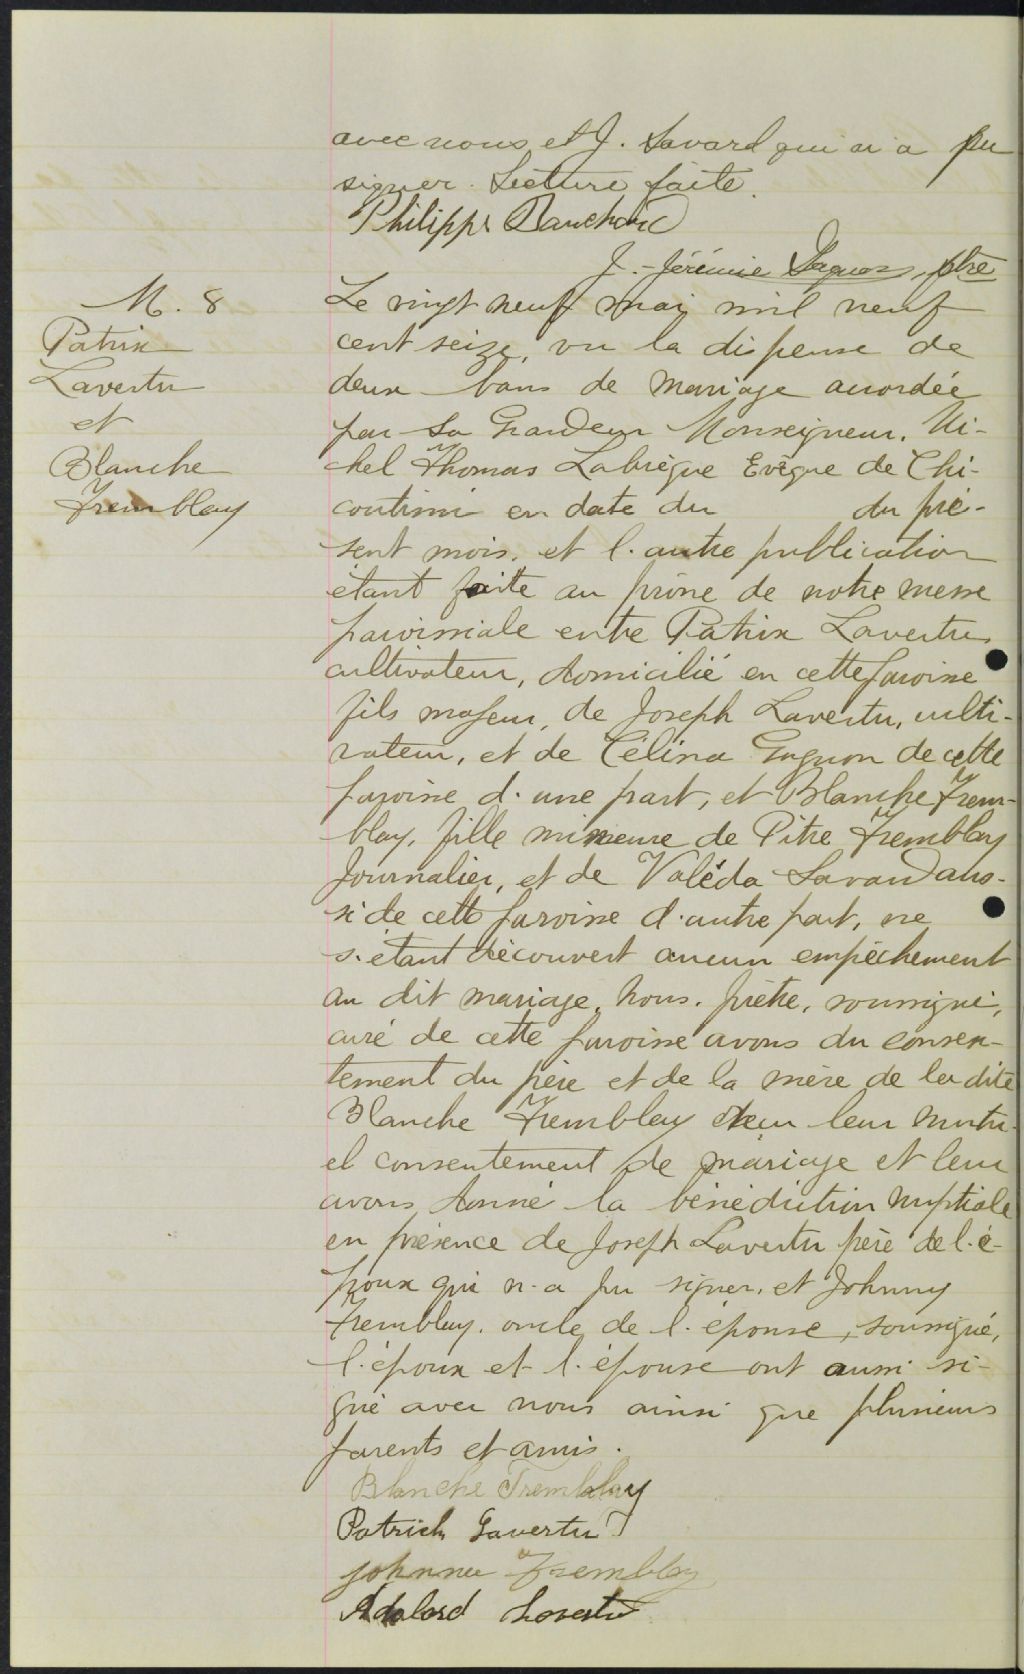 avec nous et J. Savard qui n'a pu
signer. Lecture faite.
Philippe
J.-Jérémie ptre
M. 8
Patrix
Lavertu
et
Blanche
Tremblay
Le vingt neuf mai mil neuf
cent seize, vu la dispense de
deux bans de mariage accordée
par Sa Grandeur Monseigneur. Mi-
chel Thomas Labrèque Evêque de Chi-
coutimi en date du du pré-
sent mois, et l'autre publication
étant faite au prône de notre messe
paroissiale entre Patrix Lavertu
cultivateur, domicilié en cette paroisse
fils majeur, de Joseph Lavertu, culti-
vateur, et de Célina Gagnon de cette
paroisse d'une part, et Blanche Trem-
blay, fille mineure de Pitre Tremblay
Journalier, et de Valéda Savard aus-
si de cette paroisse d'autre part, ne
s'étant découvert aucun empêchement
au dit mariage, Nous, prêtre, soussigné,
curé de cette paroisse avons du consen-
tement du père et de la mère de la dite
Blanche Tremblay reçu leur mutu-
el consentement de mariage et leur
avons donné la bénédiction nuptiale
en présence de Joseph Lavertu père de l'é-
poux qui n'a pu signer, et Johnny
Tremblay, oncle de l'épouse, soussigné,
l'époux et l'épouse ont aussi si-
gné avec nous ainsi que plusieurs
parents et amis.
Blanche Tremblay
Patrick Lavertu
Johnne Tremblay
Adalard Lavertu